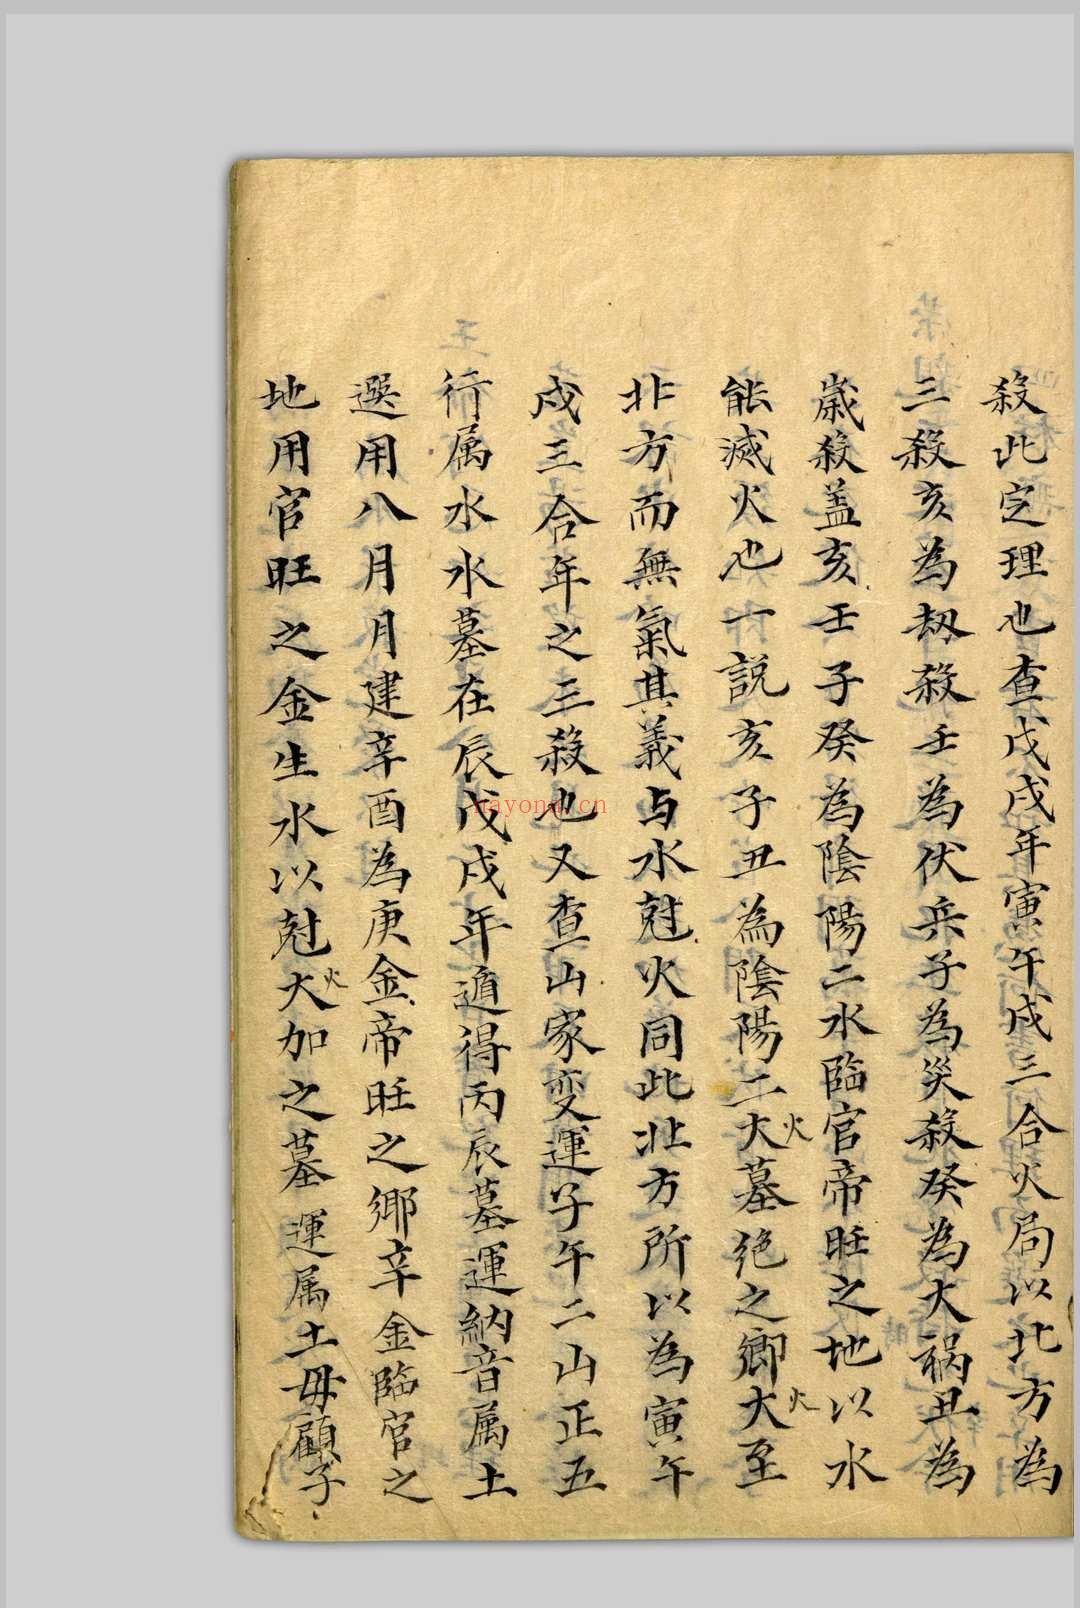 殺此定理也查戊戌年寅午戌三合火局以北方為
三殺亥為刼殺壬為伏兵子為災殺癸為大禍丑為
歲殺盖亥壬子癸為陰陽二水臨官帝旺之地以水
能滅火也一説亥子丑為陰陽二大火墓绝之鄉大火至
北方而無氣其義与水尅火同此北方所以為寅午
戌三合年之三殺也又查山家变運子午二山正五
行属水水墓在辰戊戌年遁得丙辰墓運納音属土
選用八月月建辛酉為庚金帝旺之鄉辛金臨官之
地用官旺之金生水以尅大火加之墓運属土毋顧子
nayona.cn